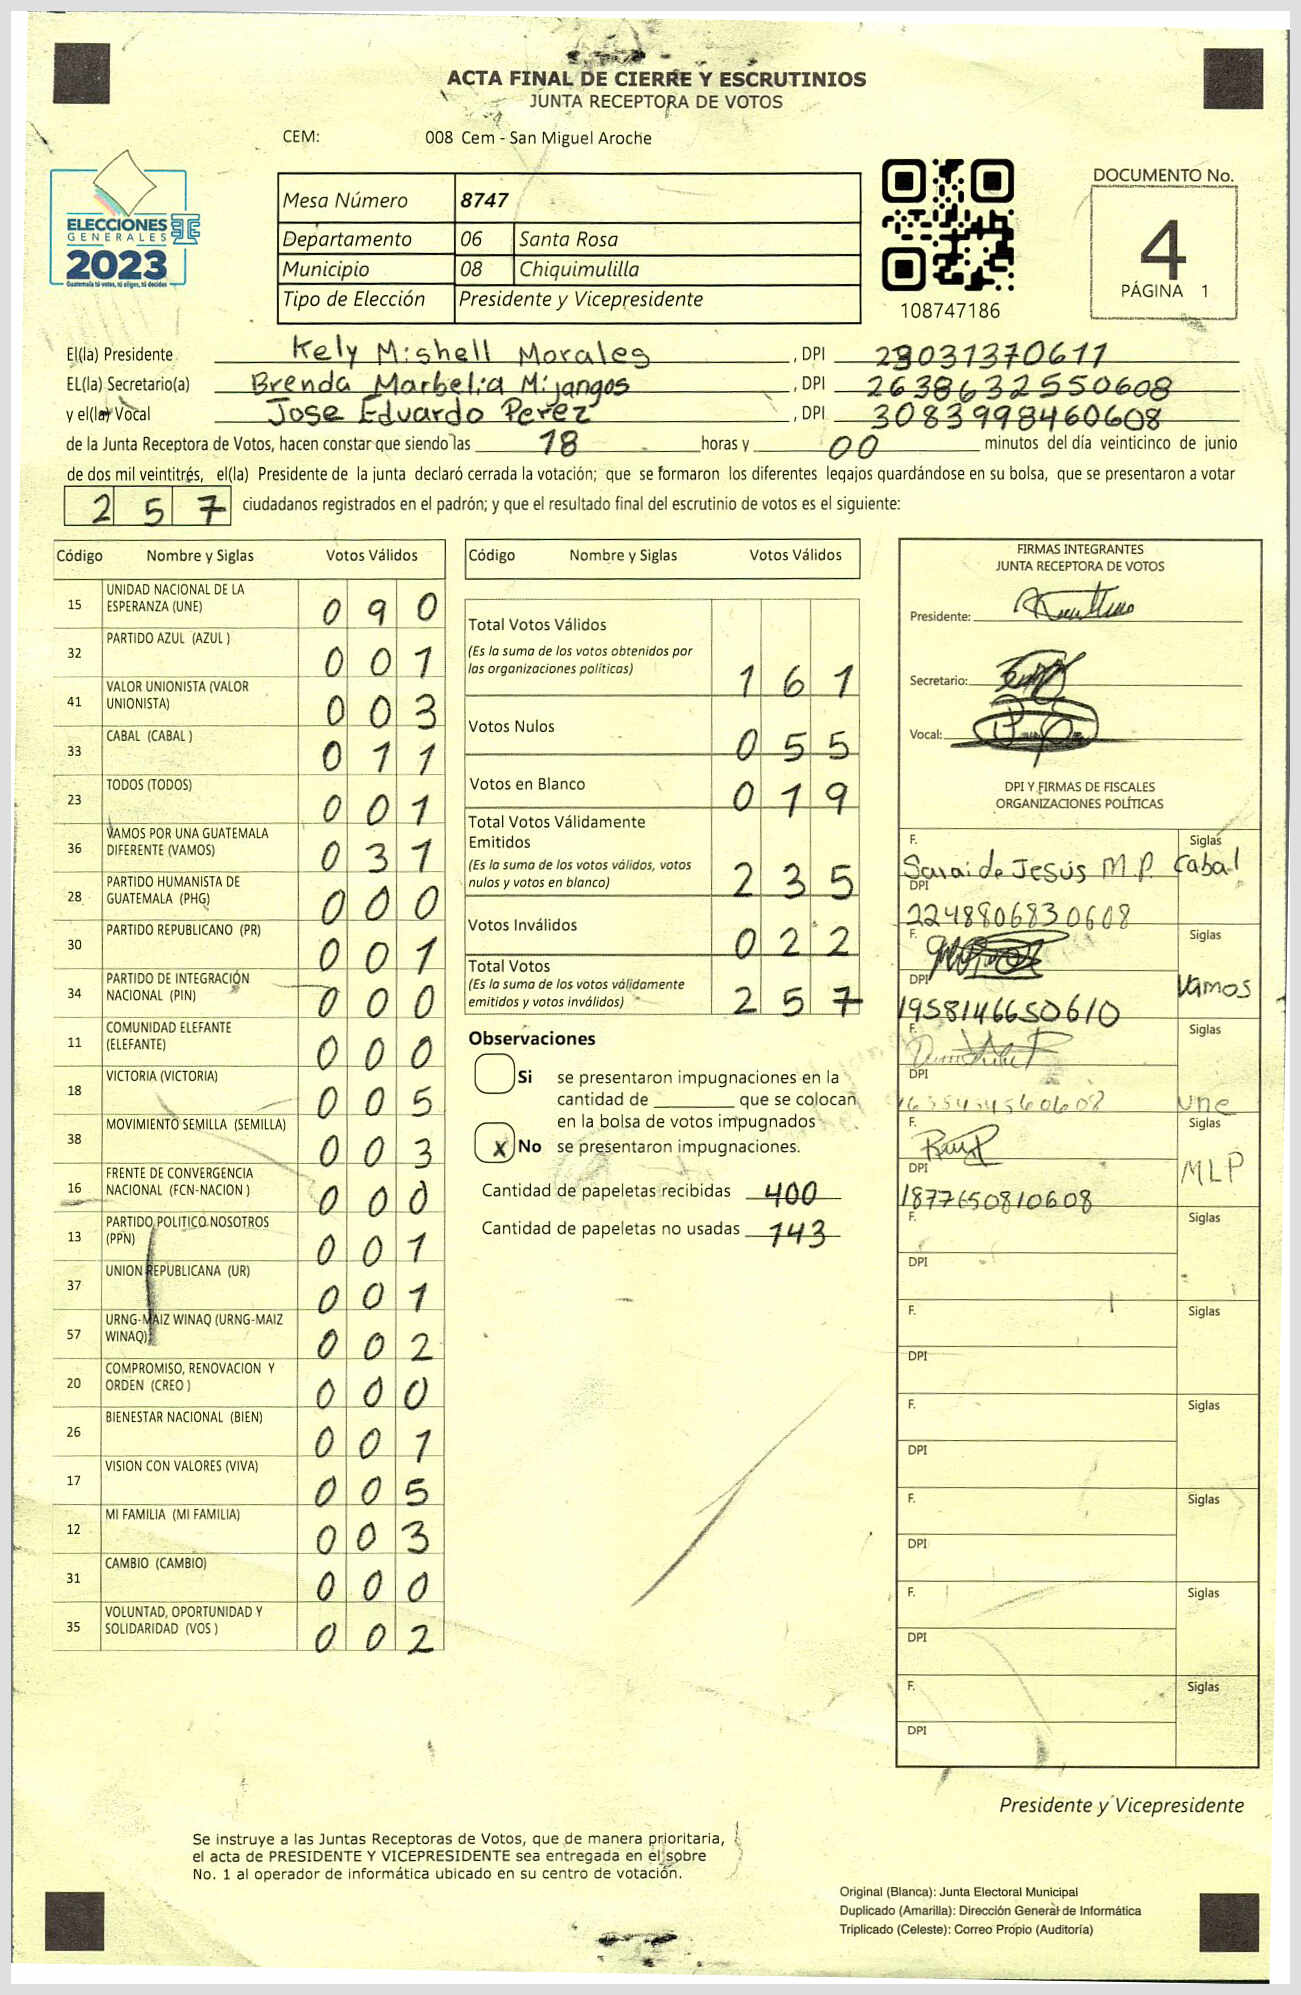 ACTA FINAL DE CIERRE Y ESCRUTINIOS
JUNTA RECEPTORA DE VOTOS
CEM: 008 Cem - San Miguel Aroche
ELECCIONES
GENERALES
2023
Guatemala tú votas, tú eliges, tú decides
Mesa Número 8747
Departamento 06 Santa Rosa
Municipio 08 Chiquimulilla
Tipo de Elección Presidente y Vicepresidente
108747186
DOCUMENTO No.
4
PÁGINA 1
El(la) Presidente Kely Mishell Morales , DPI
EL(la) Secretario(a) Brenda Marbelia Mijangos , DPI 2638632550608
y el(la) Vocal Jose Eduardo Perez , DPI 3083998460608
de la Junta Receptora de Votos, hacen constar que siendo las 18 horas y 00 minutos del día veinticinco de junio
de dos mil veintitrés, el(la) Presidente de la junta declaró cerrada la votación; que se formaron los diferentes legajos guardándose en su bolsa, que se presentaron a votar
257 ciudadanos registrados en el padrón; y que el resultado final del escrutinio de votos es el siguiente:
Código Nombre y Siglas Votos Válidos
15 UNIDAD NACIONAL DE LA ESPERANZA (UNE) 090
32 PARTIDO AZUL (AZUL ) 001
41 VALOR UNIONISTA (VALOR UNIONISTA) 003
33 CABAL (CABAL ) 011
23 TODOS (TODOS) 001
36 VAMOS POR UNA GUATEMALA DIFERENTE (VAMOS) 031
28 PARTIDO HUMANISTA DE GUATEMALA (PHG) 000
30 PARTIDO REPUBLICANO (PR) 001
34 PARTIDO DE INTEGRACIÓN NACIONAL (PIN) 000
11 COMUNIDAD ELEFANTE (ELEFANTE) 000
18 VICTORIA (VICTORIA) 005
38 MOVIMIENTO SEMILLA (SEMILLA) 003
16 FRENTE DE CONVERGENCIA NACIONAL (FCN-NACION ) 000
13 PARTIDO POLITICO NOSOTROS (PPN) 001
37 UNION REPUBLICANA (UR) 001
57 URNG-MAIZ WINAQ (URNG-MAIZ WINAQ) 002
20 COMPROMISO, RENOVACION Y ORDEN (CREO ) 000
26 BIENESTAR NACIONAL (BIEN) 001
17 VISION CON VALORES (VIVA) 005
12 MI FAMILIA (MI FAMILIA) 003
31 CAMBIO (CAMBIO) 000
35 VOLUNTAD, OPORTUNIDAD Y SOLIDARIDAD (VOS ) 002
Código Nombre y Siglas Votos Válidos
Total Votos Válidos 161
(Es la suma de los votos obtenidos por
las organizaciones políticas)
Votos Nulos 055
Votos en Blanco 019
Total Votos Válidamente
Emitidos 235
(Es la suma de los votos válidos, votos
nulos y votos en blanco)
Votos Inválidos 022
Total Votos 257
(Es la suma de los votos válidamente
emitidos y votos inválidos)
Observaciones
Si se presentaron impugnaciones en la
cantidad de ________ que se colocan
en la bolsa de votos impugnados
x No se presentaron impugnaciones.
Cantidad de papeletas recibidas 400
Cantidad de papeletas no usadas 143
FIRMAS INTEGRANTES
JUNTA RECEPTORA DE VOTOS
Presidente:
Secretario:
Vocal:
DPI Y FIRMAS DE FISCALES
ORGANIZACIONES POLÍTICAS
F. Siglas
Sarai de Jesús M.P. Cabal
DPI
2248806830608
F. Siglas
DPI Vamos
1958146650610
F. Siglas
DPI
une
F. Siglas
DPI MLP
1877650810608
F. Siglas
DPI
F. Siglas
DPI
F. Siglas
DPI
F. Siglas
DPI
F. Siglas
DPI
F. Siglas
DPI
Presidente y Vicepresidente
Se instruye a las Juntas Receptoras de Votos, que de manera prioritaria,
el acta de PRESIDENTE Y VICEPRESIDENTE sea entregada en el sobre
No. 1 al operador de informática ubicado en su centro de votación.
Original (Blanca): Junta Electoral Municipal
Duplicado (Amarilla): Dirección General de Informática
Triplicado (Celeste): Correo Propio (Auditoría)